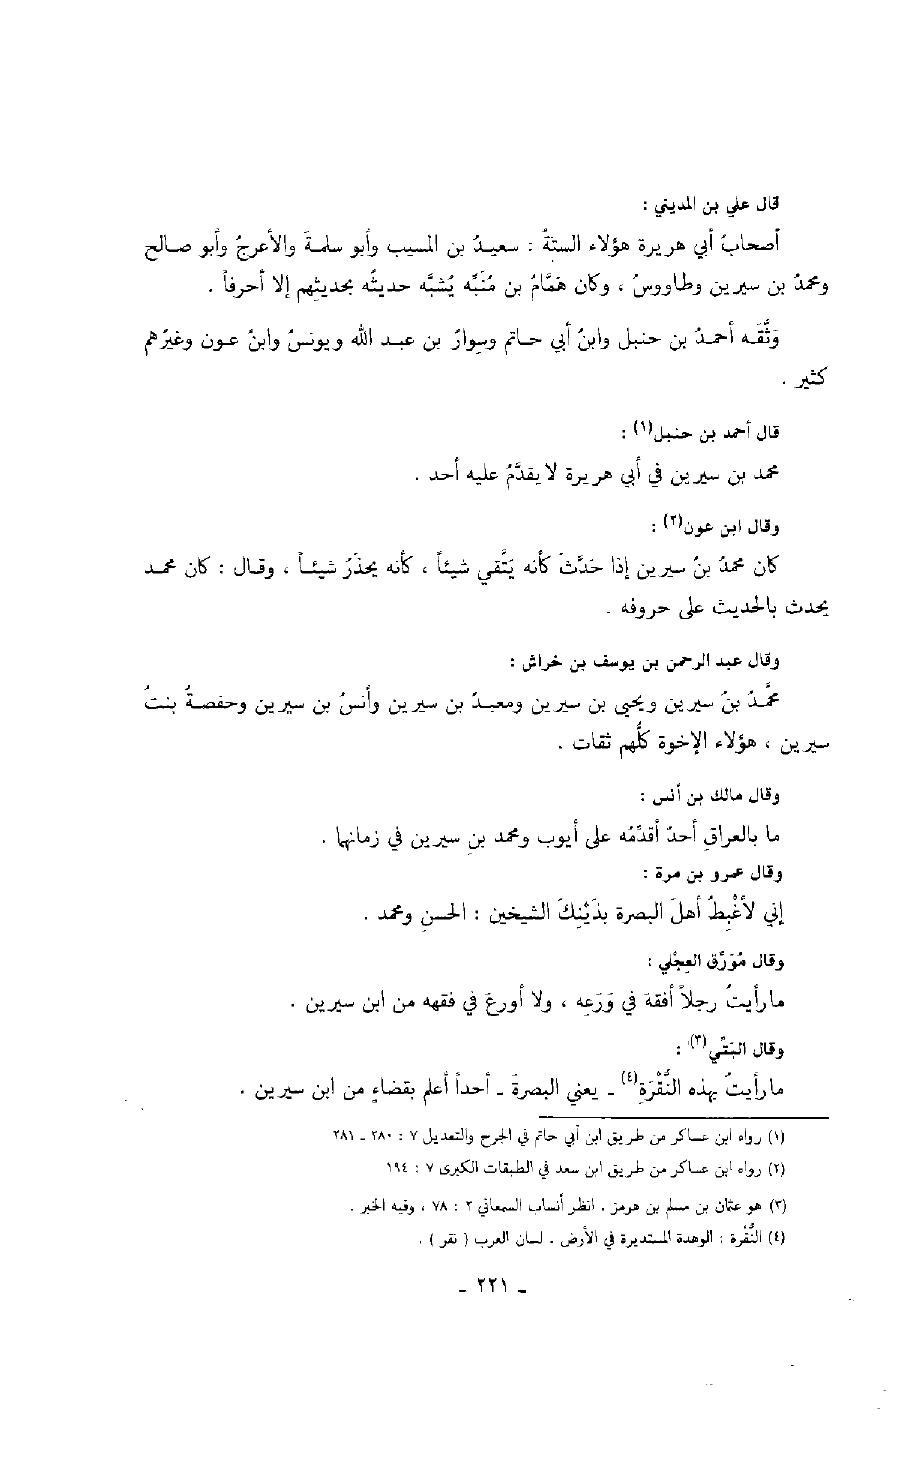 قال علي بن المديني :
أصحابُ أبي هريرة هؤلاء الستةُ : سعيدُ بن المسيب وأبو سلمةَ والأعرجُ وأبو صالح
ومحمدُ بن سيرين وطاووسُ ، وكان هَمَّامُ بن مُنَبِّه يُشبَّه حديثُه بحديثهم إلا أحرفاً .
وَثَّقَه أحمدُ بن حنبل وابنُ أبي حاتم وسوارُ بن عبد الله ويونسُ وابنُ عون وغيرُهم
كثير .
قال أحمد بن حنبل(١) :
محمد بن سيرين في أبي هريرة لا يقدَّمُ عليه أحد .
وقال ابن عون(٢) :
كان محمدُ بنُ سيرين إذا حَدَّثَ كأنه يَتَّقي شيئاً ، كأنه يحذَرُ شيئاً ، وقال : كان محمد
يحدث بالحديث على حروفه .
وقال عبد الرحمن بن يوسف بن خراش :
محَّمدُ بنُ سيرين ويحيى بن سيرين ومعبدُ بن سيرين وأنسُ بن سيرين وحفصةُ بنتُ
سيرين ، هؤلاء الإخوة كلُّهم ثقات .
وقال مالك بن أنس :
ما بالعراقِ أحدٌ أقدِّمُه على أيوب ومحمد بن سيرين في زمانهما .
وقال عمرو بن مرة :
إني لأَغْبِطُ أهلَ البصرة بذَيْنِكَ الشيخين : الحسن ومحمد .
وقال مُوَرِّق العِجْلي :
ما رأيتُ رجلاً أفقهَ في وَرَعِه ، ولا أورعَ في فقهه من ابن سيرين .
وقال البَتِّي(٣) :
ما رأيتُ بهذه النُّقْرَةِ(٤) - يعني البصرةَ - أحداً أعلم بقضاءٍ من ابن سيرين .
(١) رواه ابن عساكر من طريق ابن أبي حاتم في الجرح والتعديل ٧ : ٢٨٠ - ٢٨١
(٢) رواه ابن عساكر من طريق ابن سعد في الطبقات الكبرى ٧ : ١٩٤
(٣) هو عثمان بن مسلم بن هرمز . انظر أنساب السمعاني ٢ : ٧٨ ، وفيه الخبر .
(٤) النُّقْرة : الوهدة المستديرة في الأرض . لسان العرب ( نقر ) .
- ٢٢١ -